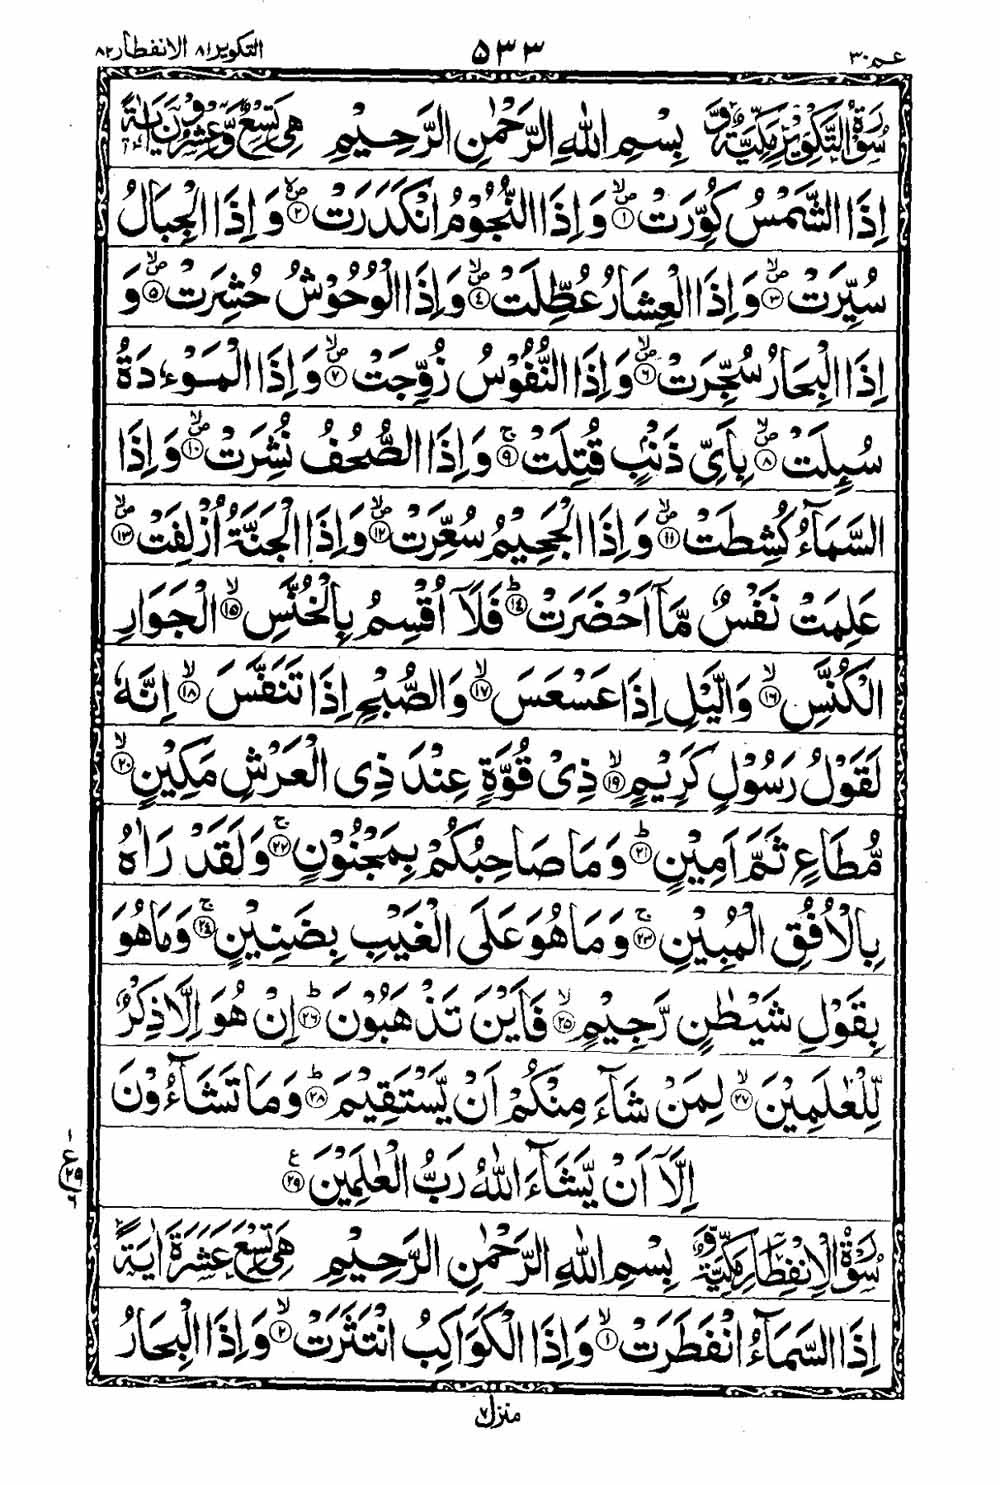 عم ٣٠ ٥٣٣ التكوير ٨١ الانفطار ٨٢
سُوْرَةُ التَّكْوِيْرِ مَكِّيَّةٌ وَّ بِسْمِ اللهِ الرَّحْمٰنِ الرَّحِيْمِ هِيَ تِسْعٌ وَّعِشْرُوْنَ اٰيَةً
اِذَا الشَّمْسُ كُوِّرَتْ ۪ۙ ﴿١﴾ وَاِذَا النُّجُوْمُ انْكَدَرَتْ ۪ۙ ﴿٢﴾ وَاِذَا الْجِبَالُ
سُيِّرَتْ ۪ۙ ﴿٣﴾ وَاِذَا الْعِشَارُ عُطِّلَتْ ۪ۙ ﴿٤﴾ وَاِذَا الْوُحُوْشُ حُشِرَتْ ۪ۙ ﴿٥﴾ وَ
اِذَا الْبِحَارُ سُجِّرَتْ ۪ۙ ﴿٦﴾ وَاِذَا النُّفُوْسُ زُوِّجَتْ ۪ۙ ﴿٧﴾ وَاِذَا الْمَوْءٗدَةُ
سُىِٕلَتْ ۪ۙ ﴿٨﴾ بِاَىِّ ذَنْۢبٍ قُتِلَتْ ۚ ﴿٩﴾ وَاِذَا الصُّحُفُ نُشِرَتْ ۪ۙ ﴿١٠﴾ وَاِذَا
السَّمَآءُ كُشِطَتْ ۪ۙ ﴿١١﴾ وَاِذَا الْجَحِيْمُ سُعِّرَتْ ۪ۙ ﴿١٢﴾ وَاِذَا الْجَنَّةُ اُزْلِفَتْ ۪ۙ ﴿١٣﴾
عَلِمَتْ نَفْسٌ مَّاۤ اَحْضَرَتْ ؕ ﴿١٤﴾ فَلَاۤ اُقْسِمُ بِالْخُنَّسِ ۙ ﴿١٥﴾ الْجَوَارِ
الْكُنَّسِ ۙ ﴿١٦﴾ وَالَّيْلِ اِذَا عَسْعَسَ ۙ ﴿١٧﴾ وَالصُّبْحِ اِذَا تَنَفَّسَ ۙ ﴿١٨﴾ اِنَّهٗ
لَقَوْلُ رَسُوْلٍ كَرِيْمٍ ۙ ﴿١٩﴾ ذِىْ قُوَّةٍ عِنْدَ ذِى الْعَرْشِ مَكِيْنٍ ۙ ﴿٢٠﴾
مُّطَاعٍ ثَمَّ اَمِيْنٍ ؕ ﴿٢١﴾ وَمَا صَاحِبُكُمْ بِمَجْنُوْنٍ ۚ ﴿٢٢﴾ وَلَقَدْ رَاٰهُ
بِالْاُفُقِ الْمُبِيْنِ ۚ ﴿٢٣﴾ وَمَا هُوَ عَلَى الْغَيْبِ بِضَنِيْنٍ ۚ ﴿٢٤﴾ وَمَا هُوَ
بِقَوْلِ شَيْطٰنٍ رَّجِيْمٍ ۙ ﴿٢٥﴾ فَاَيْنَ تَذْهَبُوْنَ ؕ ﴿٢٦﴾ اِنْ هُوَ اِلَّا ذِكْرٌ
لِّلْعٰلَمِيْنَ ۙ ﴿٢٧﴾ لِمَنْ شَآءَ مِنْكُمْ اَنْ يَّسْتَقِيْمَ ؕ ﴿٢٨﴾ وَمَا تَشَآءُوْنَ
اِلَّاۤ اَنْ يَّشَآءَ اللهُ رَبُّ الْعٰلَمِيْنَ ﴿٢٩﴾ ع
١ ع ٢٩ ٦
سُوْرَةُ الْاِنْفِطَارِ مَكِّيَّةٌ وَّ بِسْمِ اللهِ الرَّحْمٰنِ الرَّحِيْمِ هِيَ تِسْعَ عَشَرَةَ اٰيَةً
اِذَا السَّمَآءُ انْفَطَرَتْ ۙ ﴿١﴾ وَاِذَا الْكَوَاكِبُ انْتَثَرَتْ ۙ ﴿٢﴾ وَاِذَا الْبِحَارُ
منزل ٧